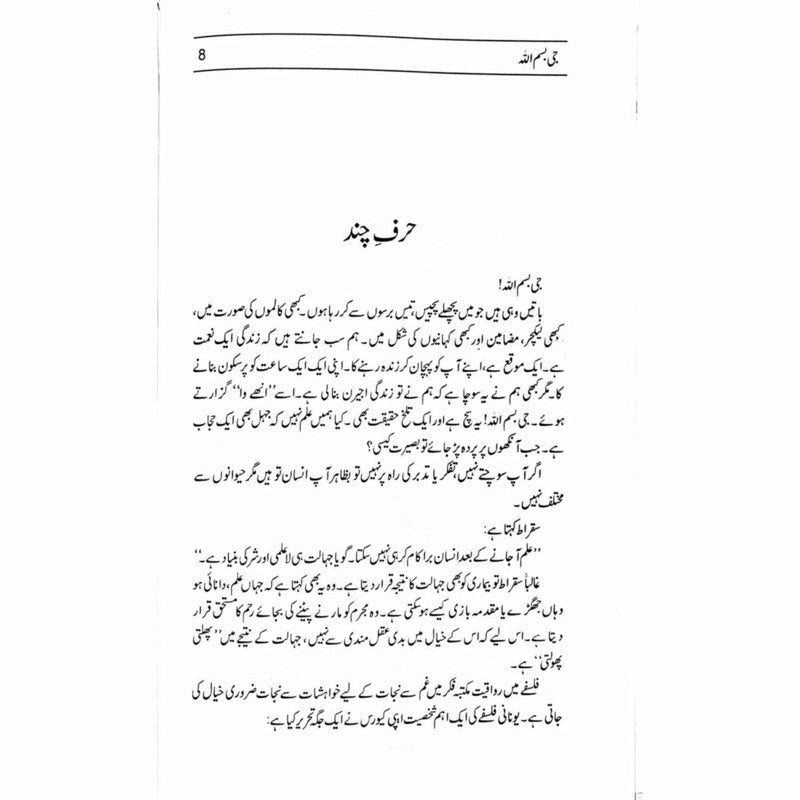 جی بسم اللہ 8
حرفِ چند
جی بسم اللہ!
باتیں وہی ہیں جو میں پچھلے پچیس، تیس برسوں سے کر رہا ہوں۔ کبھی کالموں کی صورت میں،
کبھی لیکچر، مضامین اور کبھی کہانیوں کی شکل میں۔ ہم سب جانتے ہیں کہ زندگی ایک نعمت
ہے۔ ایک موقع ہے، اپنے آپ کو پہچان کر زندہ رہنے کا۔ اپنی ایک ایک ساعت کو پرسکون بنانے
کا۔ مگر کبھی ہم نے یہ سوچا ہے کہ ہم نے تو زندگی اجیرن بنا لی ہے۔ اسے ”انھے وا“ گزارتے
ہوئے۔ جی بسم اللہ! یہ سچ ہے اور ایک تلخ حقیقت بھی۔ کیا ہمیں علم نہیں کہ جہل بھی ایک حجاب
ہے۔ جب آنکھوں پر پردہ پڑ جائے تو بصیرت کیسی؟
اگر آپ سوچتے نہیں، تفکر یا تدبر کی راہ پر نہیں تو بظاہر آپ انسان تو ہیں مگر حیوانوں سے
مختلف نہیں۔
سقراط کہتا ہے:
”علم آ جانے کے بعد انسان برا کام کر ہی نہیں سکتا۔ گویا جہالت ہی لاعلمی اور شر کی بنیاد ہے۔“
غالباً سقراط تو بیماری کو بھی جہالت کا نتیجہ قرار دیتا ہے۔ وہ یہ بھی کہتا ہے کہ جہاں علم، دانائی ہو
وہاں جھگڑے یا مقدمہ بازی کیسے ہو سکتی ہے۔ وہ مجرم کو مارنے پیٹنے کی بجائے رحم کا مستحق قرار
دیتا ہے۔ اس لیے کہ اس کے خیال میں بدی عقل مندی سے نہیں، جہالت کے نتیجے میں ”پھلتی
پھولتی“ ہے۔
فلسفے میں رواقیت مکتبہ فکر میں غم سے نجات کے لیے خواہشات سے نجات ضروری خیال کی
جاتی ہے۔ یونانی فلسفے کی ایک اہم شخصیت اپی کیورس نے ایک جگہ تحریر کیا ہے: